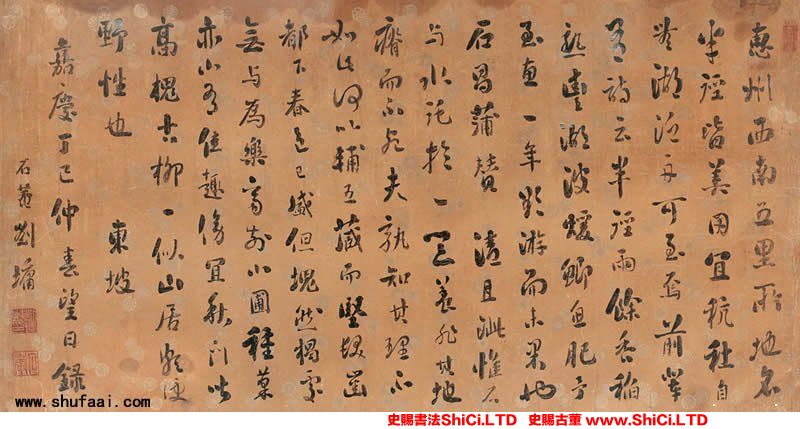 惠州西南五里所地名
半逕皆美田宜秔秫自
豐湖泛舟可至焉前輩
有詩云半逕雨餘香稻
熟豐湖波煖鯽魚肥予
至惠一年欵游而未果也
石菖蒲賛 清且泚惟石
与水託於一器養非其地
瘠而不死夫孰知其理不
如此何以輔五藏而堅髮齒
都下春色已盛但塊然獨處
無与為樂齋前小圃種菜
亦小有佳趣傍宜秋門皆
高槐古柳一似山居頗便
野性也 東坡
嘉慶丁巳仲春望日錄
石菴劉墉
www.shufaai.com
史賜書法ShiCi.LTD 史賜古董 www.ShiCi.LTD